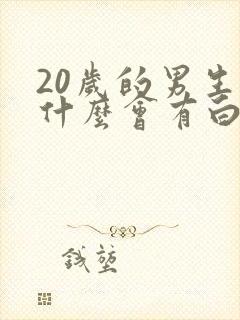 20歲的男生
什麼會有白